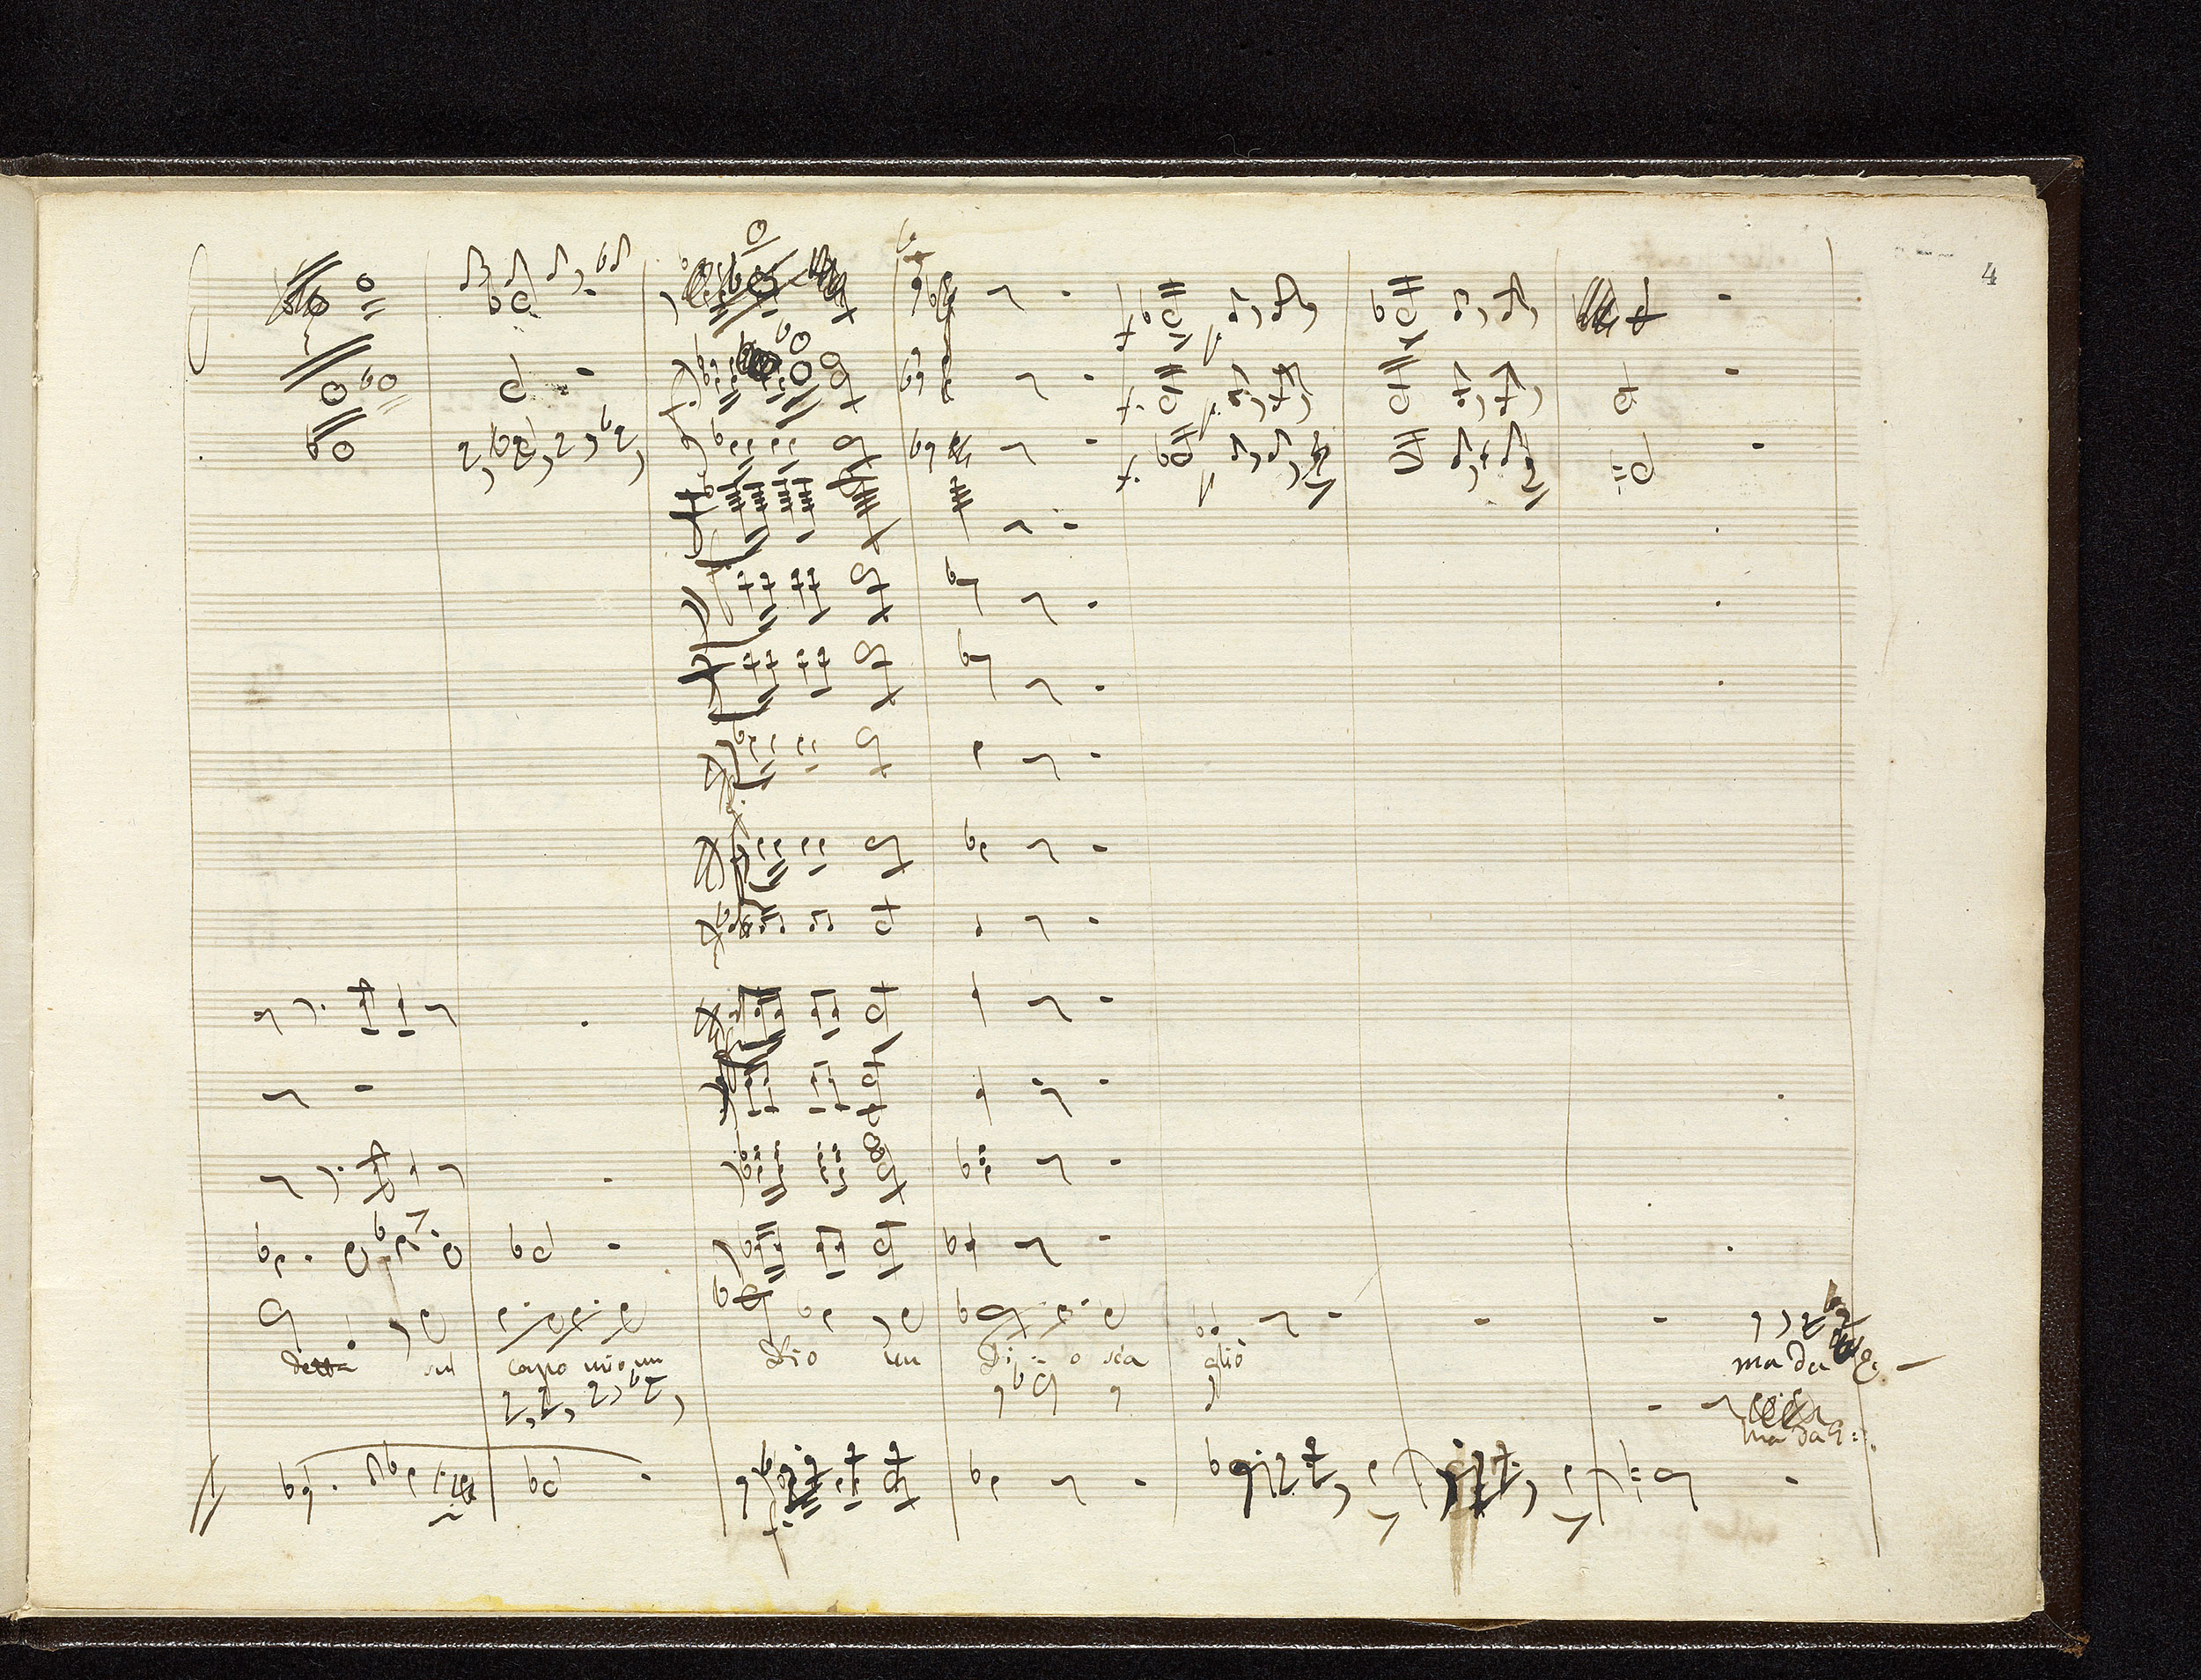 4
detta sul capo mio un Dio un Di = o sca glio ma da
ma da